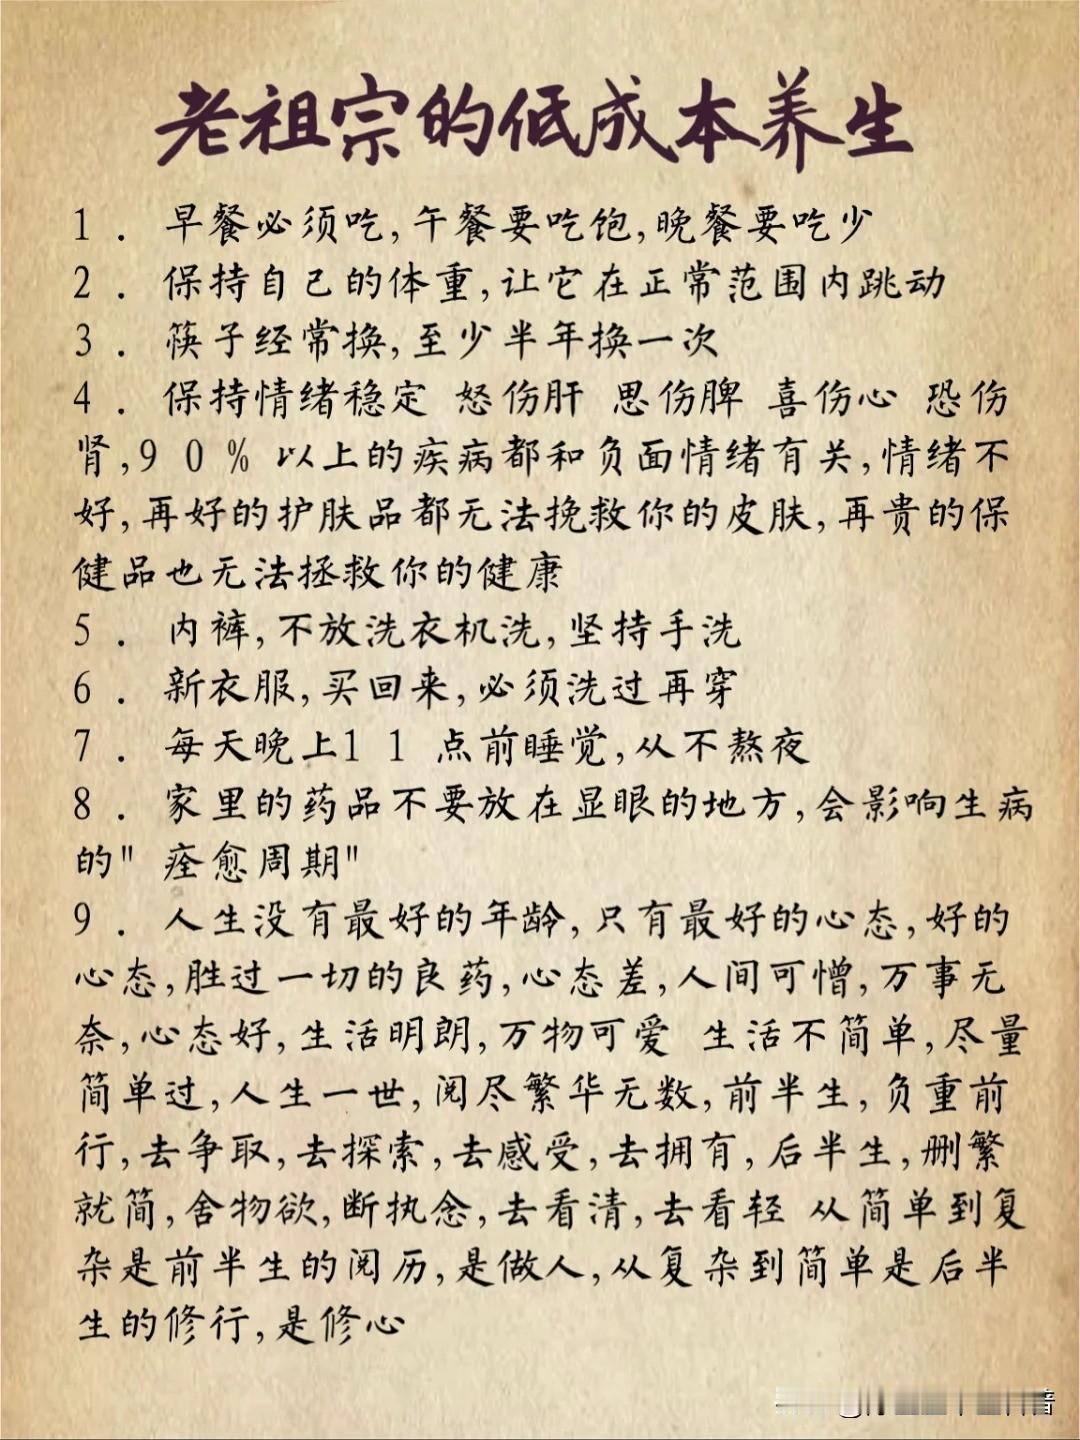 老祖宗的低成本养生
1. 早餐必须吃,午餐要吃饱,晚餐要吃少
2. 保持自己的体重,让它在正常范围内跳动
3. 筷子经常换,至少半年换一次
4. 保持情绪稳定 怒伤肝 思伤脾 喜伤心 恐伤
肾,90%以上的疾病都和负面情绪有关,情绪不
好,再好的护肤品都无法挽救你的皮肤,再贵的保
健品也无法拯救你的健康
5. 内裤,不放洗衣机洗,坚持手洗
6. 新衣服,买回来,必须洗过再穿
7. 每天晚上11点前睡觉,从不熬夜
8. 家里的药品不要放在显眼的地方,会影响生病
的"痊愈周期"
9. 人生没有最好的年龄,只有最好的心态,好的
心态,胜过一切的良药,心态差,人间可憎,万事无
奈,心态好,生活明朗,万物可爱 生活不简单,尽量
简单过,人生一世,阅尽繁华无数,前半生,负重前
行,去争取,去探索,去感受,去拥有,后半生,删繁
就简,舍物欲,断执念,去看清,去看轻 从简单到复
杂是前半生的阅历,是做人,从复杂到简单是后半
生的修行,是修心